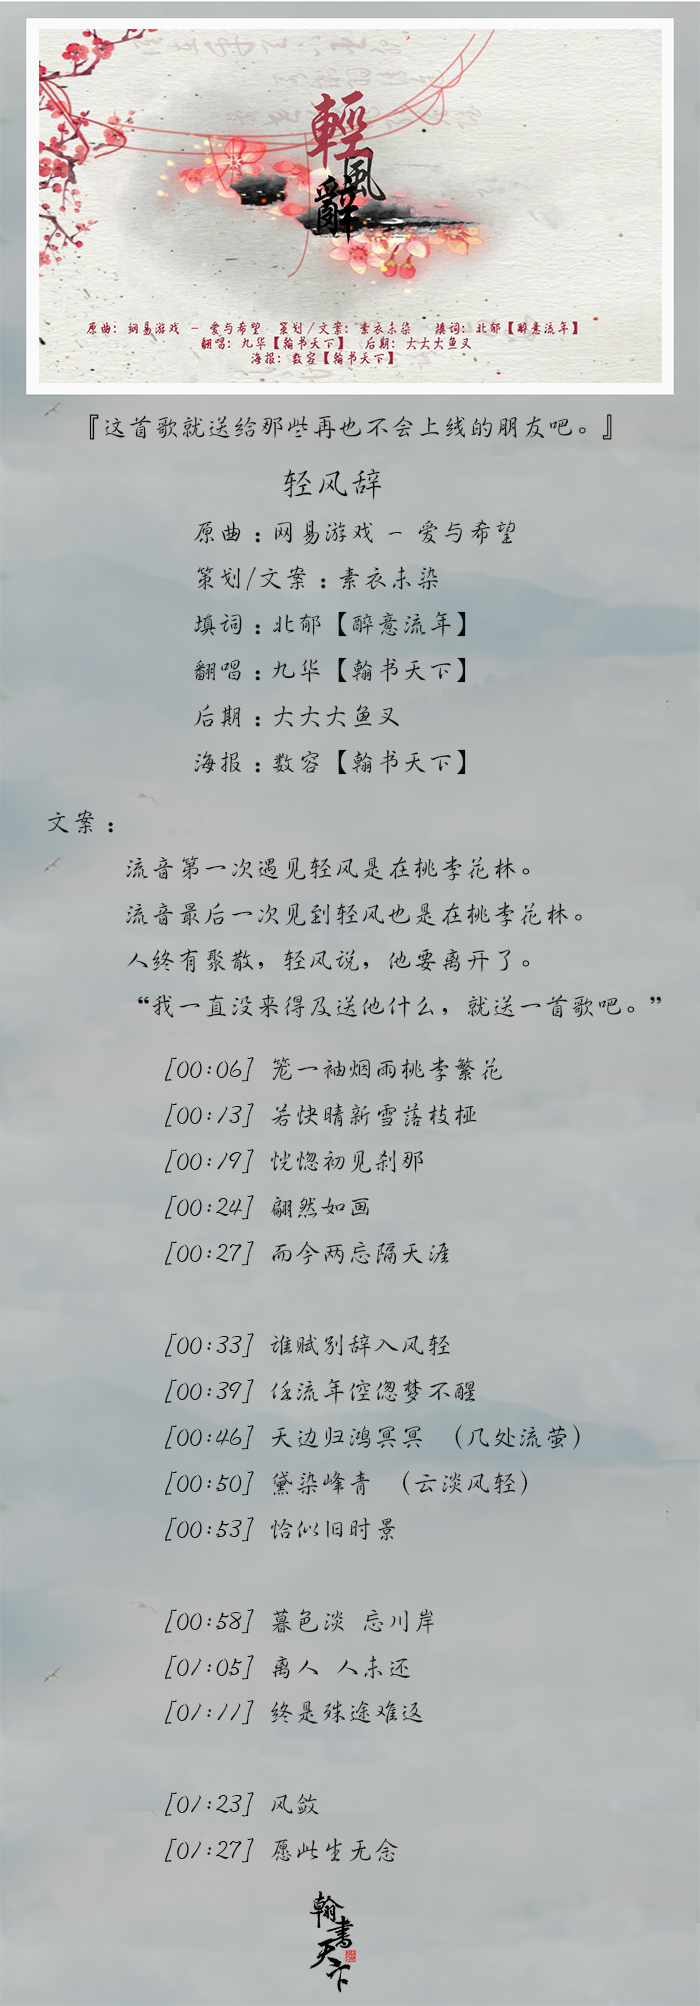 輕風辭
原曲：網易游戏 - 爱与希望 策划/文案：素衣未染 填词：北郁【醉意流年】
翻唱：九华【翰书天下】 后期：大大大鱼叉
海报：数容【翰书天下】
『这首歌就送给那些再也不会上线的朋友吧。』
轻风辞
原曲：网易游戏 - 爱与希望
策划/文案：素衣未染
填词：北郁【醉意流年】
翻唱：九华【翰书天下】
后期：大大大鱼叉
海报：数容【翰书天下】
文案：
流音第一次遇见轻风是在桃李花林。
流音最后一次见到轻风也是在桃李花林。
人终有聚散，轻风说，他要离开了。
“我一直没来得及送他什么，就送一首歌吧。”
[00:06] 笼一袖烟雨桃李繁花
[00:13] 若快晴新雪落枝桠
[00:19] 恍惚初见刹那
[00:24] 翩然如画
[00:27] 而今两忘隔天涯
[00:33] 谁赋别辞入风轻
[00:39] 任流年倥偬梦不醒
[00:46] 天边归鸿冥冥 （几处流萤）
[00:50] 黛染峰青 （云淡风轻）
[00:53] 恰似旧时景
[00:58] 暮色淡 忘川岸
[01:05] 离人 人未还
[01:11] 终是殊途难返
[01:23] 风敛
[01:27] 愿此生无念
翰書天下